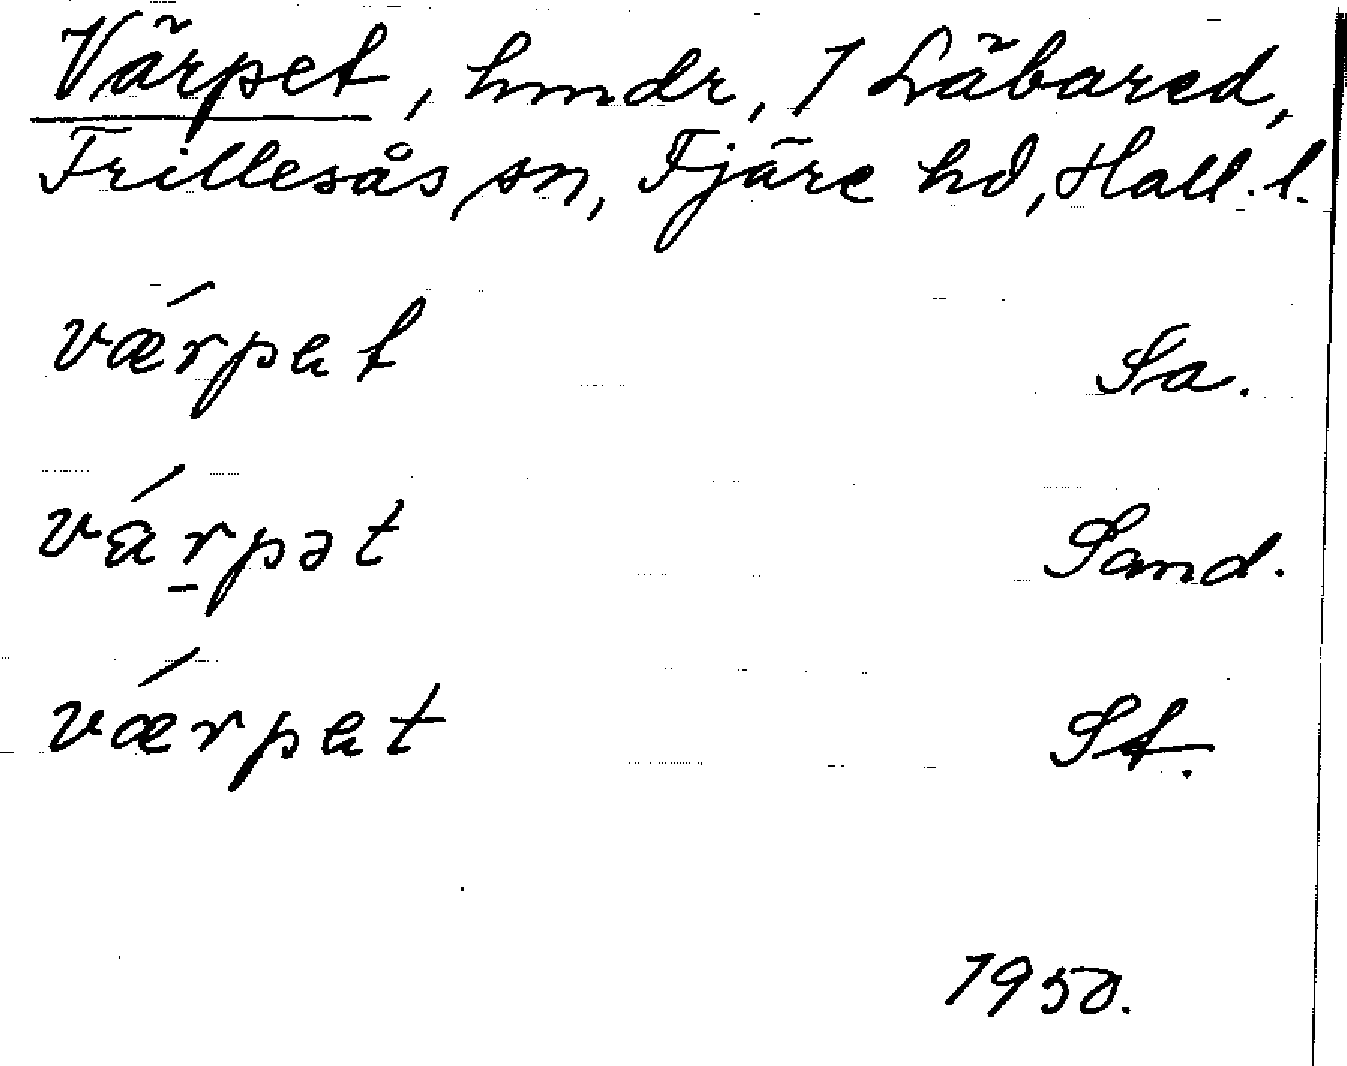 Värpet, hmdr, 1 Läbared,
Frillesås sn, Fjäre hd, Hall. l.
vǽrpat Sa.
vá̈rpət Sand.
vǽrpat St.
1950.